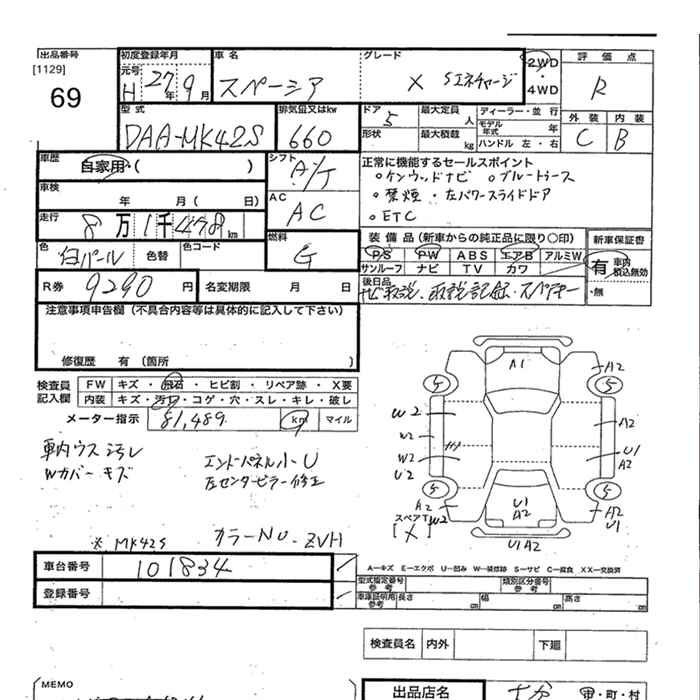 出品番号 初度登録年月 車名 グレード 2WD 評価点
[1129] 元号 H 27年 9月 スペーシア X Sエネチャージ ・ R
69 4WD
型式 排気量又はkw ドア 5 最大定員 人 ディーラー・並行 外装 内装
DAA-MK42S 660 形状 最大積載 kg モデル年式 年 ハンドル 左・右 C B
車歴 自家用・( ) シフト A/T 正常に機能するセールスポイント
車検 年 月( 日) AC AC ・ケンウッドナビ ・ブルートゥース
・禁煙 ・左パワースライドドア
走行 8万1千478km ・ETC
色 白パール 色替 色コード 燃料 G 装備品(新車からの純正品に限り○印) 新車保証書
PS PW ABS エアB アルミW 有 車内積込無効
サンルーフ ナビ TV カワ ・無
R券 9290円 名変期限 月 日 後日品
ナビ取説、取説記録・スペアキー
注意事項申告欄(不具合内容等は具体的に記入して下さい)
修復歴 有(箇所 )
検査員記入欄 FW キズ・飛石・ヒビ割・リペア跡・X要
内装 キズ・汚れ・コゲ・穴・スレ・キレ・破レ
メーター指示 81,489 km マイル
車内ウス汚レ エンドパネル小U
Wカバーキズ 左センターピラー修正
A1 A2
5 5
W2 A2
W2
W2 U1
U2 A2
5 5
A2 U1 A2
W2 A2 U1
スペアT
[X] U1A2
※MK42S カラーNo. ZVH
車台番号 101834
A―キズ E―エクボ U―凹み W―補修跡 S―サビ C―腐食 XX―交換済
登録番号 型式指定番号 参考 類別区分番号 参考
車庫証明用 参考 長さ cm 幅 cm 高さ cm
検査員名 内外 下廻
MEMO 出品店名 市・町・村